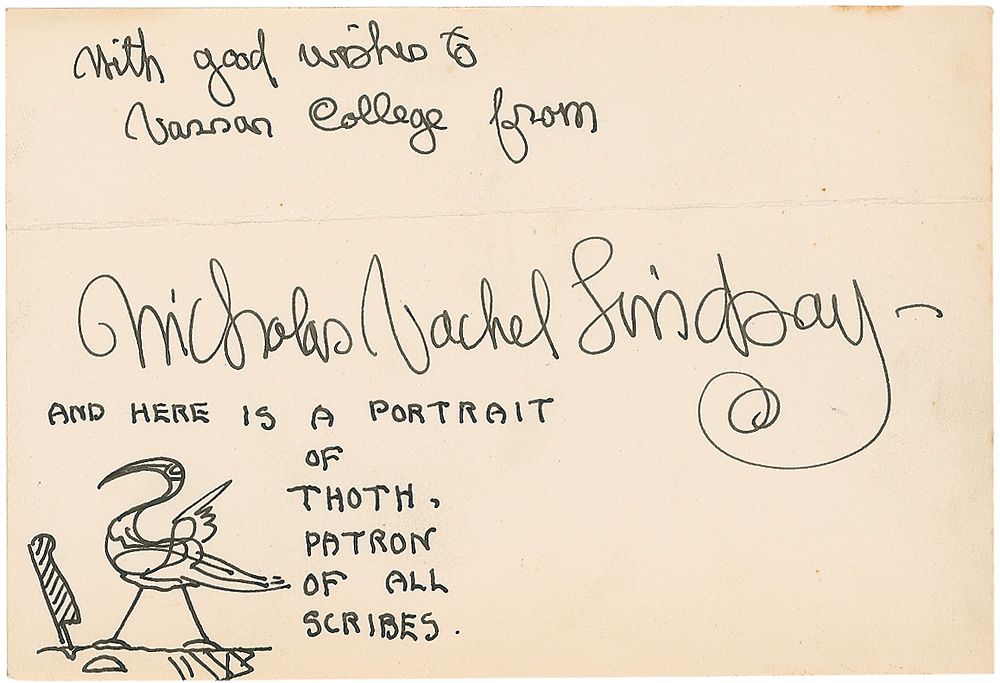 With good wishes to
Vassar College from
Nicholas Vachel Lindsay —
AND HERE IS A PORTRAIT
OF
THOTH,
PATRON
OF ALL
SCRIBES.